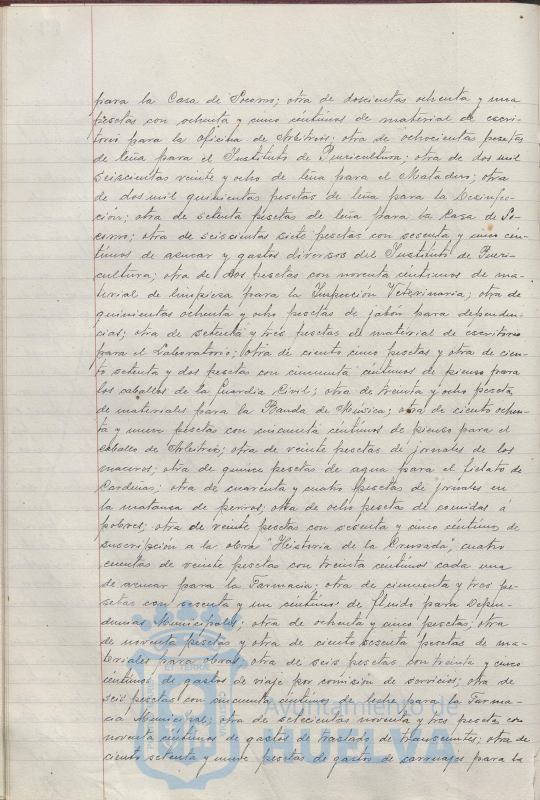 para la Casa de Socorro; otra de doscientas ochenta y una
pesetas con ochenta y cinco céntimos de material de escri-
torio para la oficina de Arbitrios; otra de ochocientas pesetas
de leña para el Instituto de Puericultura; otra de dos mil
seiscientas veinte y ocho de leña para el Matadero; otra
de dos mil quinientas pesetas de leña para la Desinfec-
ción; otra de setenta pesetas de leña para la Casa de So-
corro; otra de seiscientas siete pesetas con sesenta y cinco cén-
timos de azucar y gastos diversos del Instituto de Pueri-
cultura; otra de dos pesetas con noventa céntimos de ma-
terial de limpieza para la Inspección Veterinaria; otra de
quinientas ochenta y ocho pesetas de jabón para dependen-
cias; otra de setenta y tres pesetas de material de escritorio
para el Laboratorio; otra de ciento cinco pesetas y otra de cien-
to setenta y dos pesetas con cincuenta céntimos de pienso para
los caballos de la Guardia Civil; otra de treinta y ocho pesetas
de materiales para la Banda de Música; otra de ciento ochen-
ta y nueve pesetas con cincuenta céntimos de pienso para el
caballo de Arbitrios; otra de veinte pesetas de jornales de los
maceros; otra de quince pesetas de agua para el fielato de
Cardeñas; otra de cuarenta y cuatro pesetas de jornales en
la matanza de perros; otra de ocho pesetas de comidas á
pobres; otra de veinte pesetas con sesenta y cinco céntimos de
suscripcion a la obra "Historia de la Cruzada", cuatro
cuentas de veinte pesetas con treinta céntimos cada una
de azucar para la Farmacia; otra de cincuenta y tres pe-
setas con sesenta y un céntimos de fluido para Depen-
dencias Municipales; otra de ochenta y cinco pesetas; otra
de noventa pesetas y otra de ciento sesenta pesetas de ma-
teriales para obras; otra de seis pesetas con treinta y cinco
céntimos de gastos de viaje por comisión de servicios; otra de
seis pesetas con cincuenta céntimos de leche para la Farma-
cia Municipal; otra de setecientas noventa y tres pesetas con
noventa céntimos de gastos de traslado de transeuntes; otra de
ciento setenta y nueve pesetas de gastos de carruajes para la
Ayuntamiento de
HUELVA